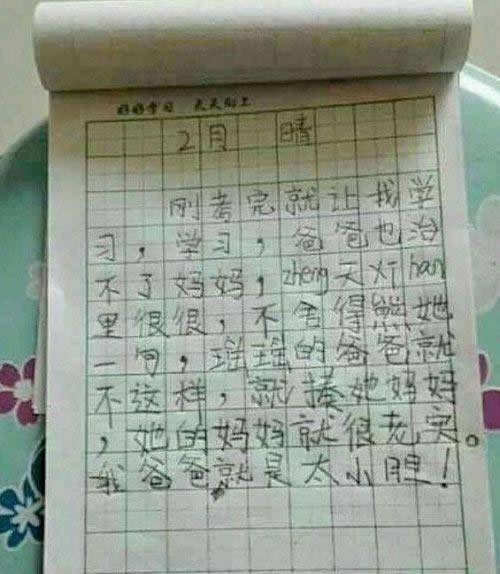 好好学习 天天向上
2月 晴
刚考完就让找学
习，学习，爸爸也治
不了妈妈，zheng天灯han
里很很，不舍得熊她
一句，瑶瑶的爸爸就
不这样，就揍她妈妈
，她的妈妈就很老实。
我爸爸就是太小胆！